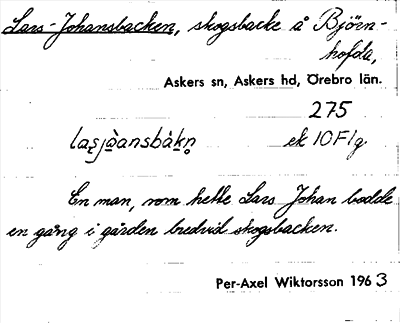 Lars-Johansbacken, skogsbacke å Björn-
hofda,
Askers sn, Askers hd, Örebro län.
275
ek 10F1g.
En man, som hette Lars Johan bodde
en gång i gården bredvid skogsbacken.
Per-Axel Wiktorsson 1963